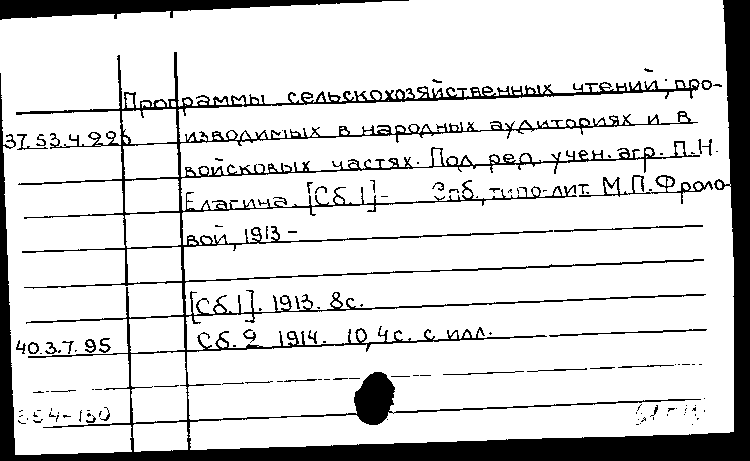 Программы сельскохозяйственных чтений, про-
37.53.4.226 изводимых в народных аудиториях и в
войсковых частях. Под ред. учен. агр. П.Н.
Елагина. [Сб. 1]- Спб., типо-лит. М.П.Фроло-
вой, 1913 -
[Сб.1]. 1913. 8с.
40.3.7.95 Сб. 2 1914. 10,4с. с илл.
354-150